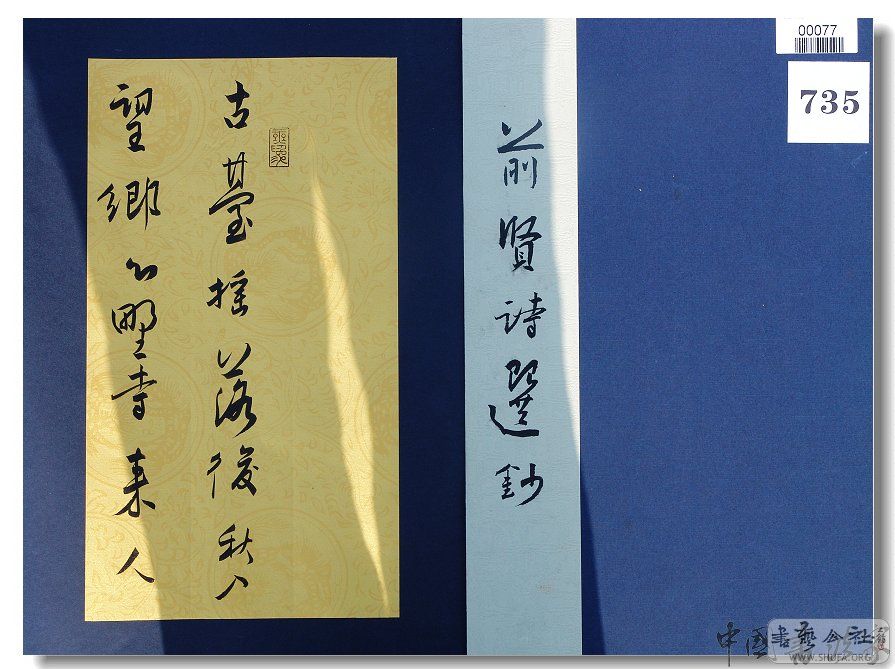 00077
735
前賢詩選鈔
古臺摇落後秋入
望鄉心野寺来人
中国書藝公社
WWW.SHUFA.ORG